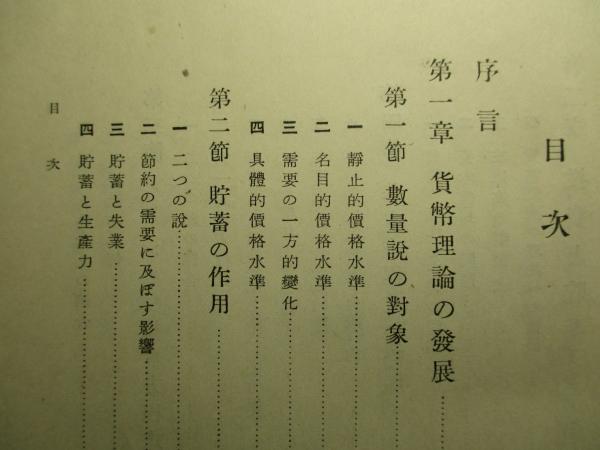 目次
序言
第一章 貨幣理論の發展
第一節 數量說の對象
一 靜止的價格水準
二 名目的價格水準
三 需要の一方的變化
四 具體的價格水準
第二節 貯蓄の作用
一 二つの說
二 節約の需要に及ぼす影響
三 貯蓄と失業
四 貯蓄と生產力
目次